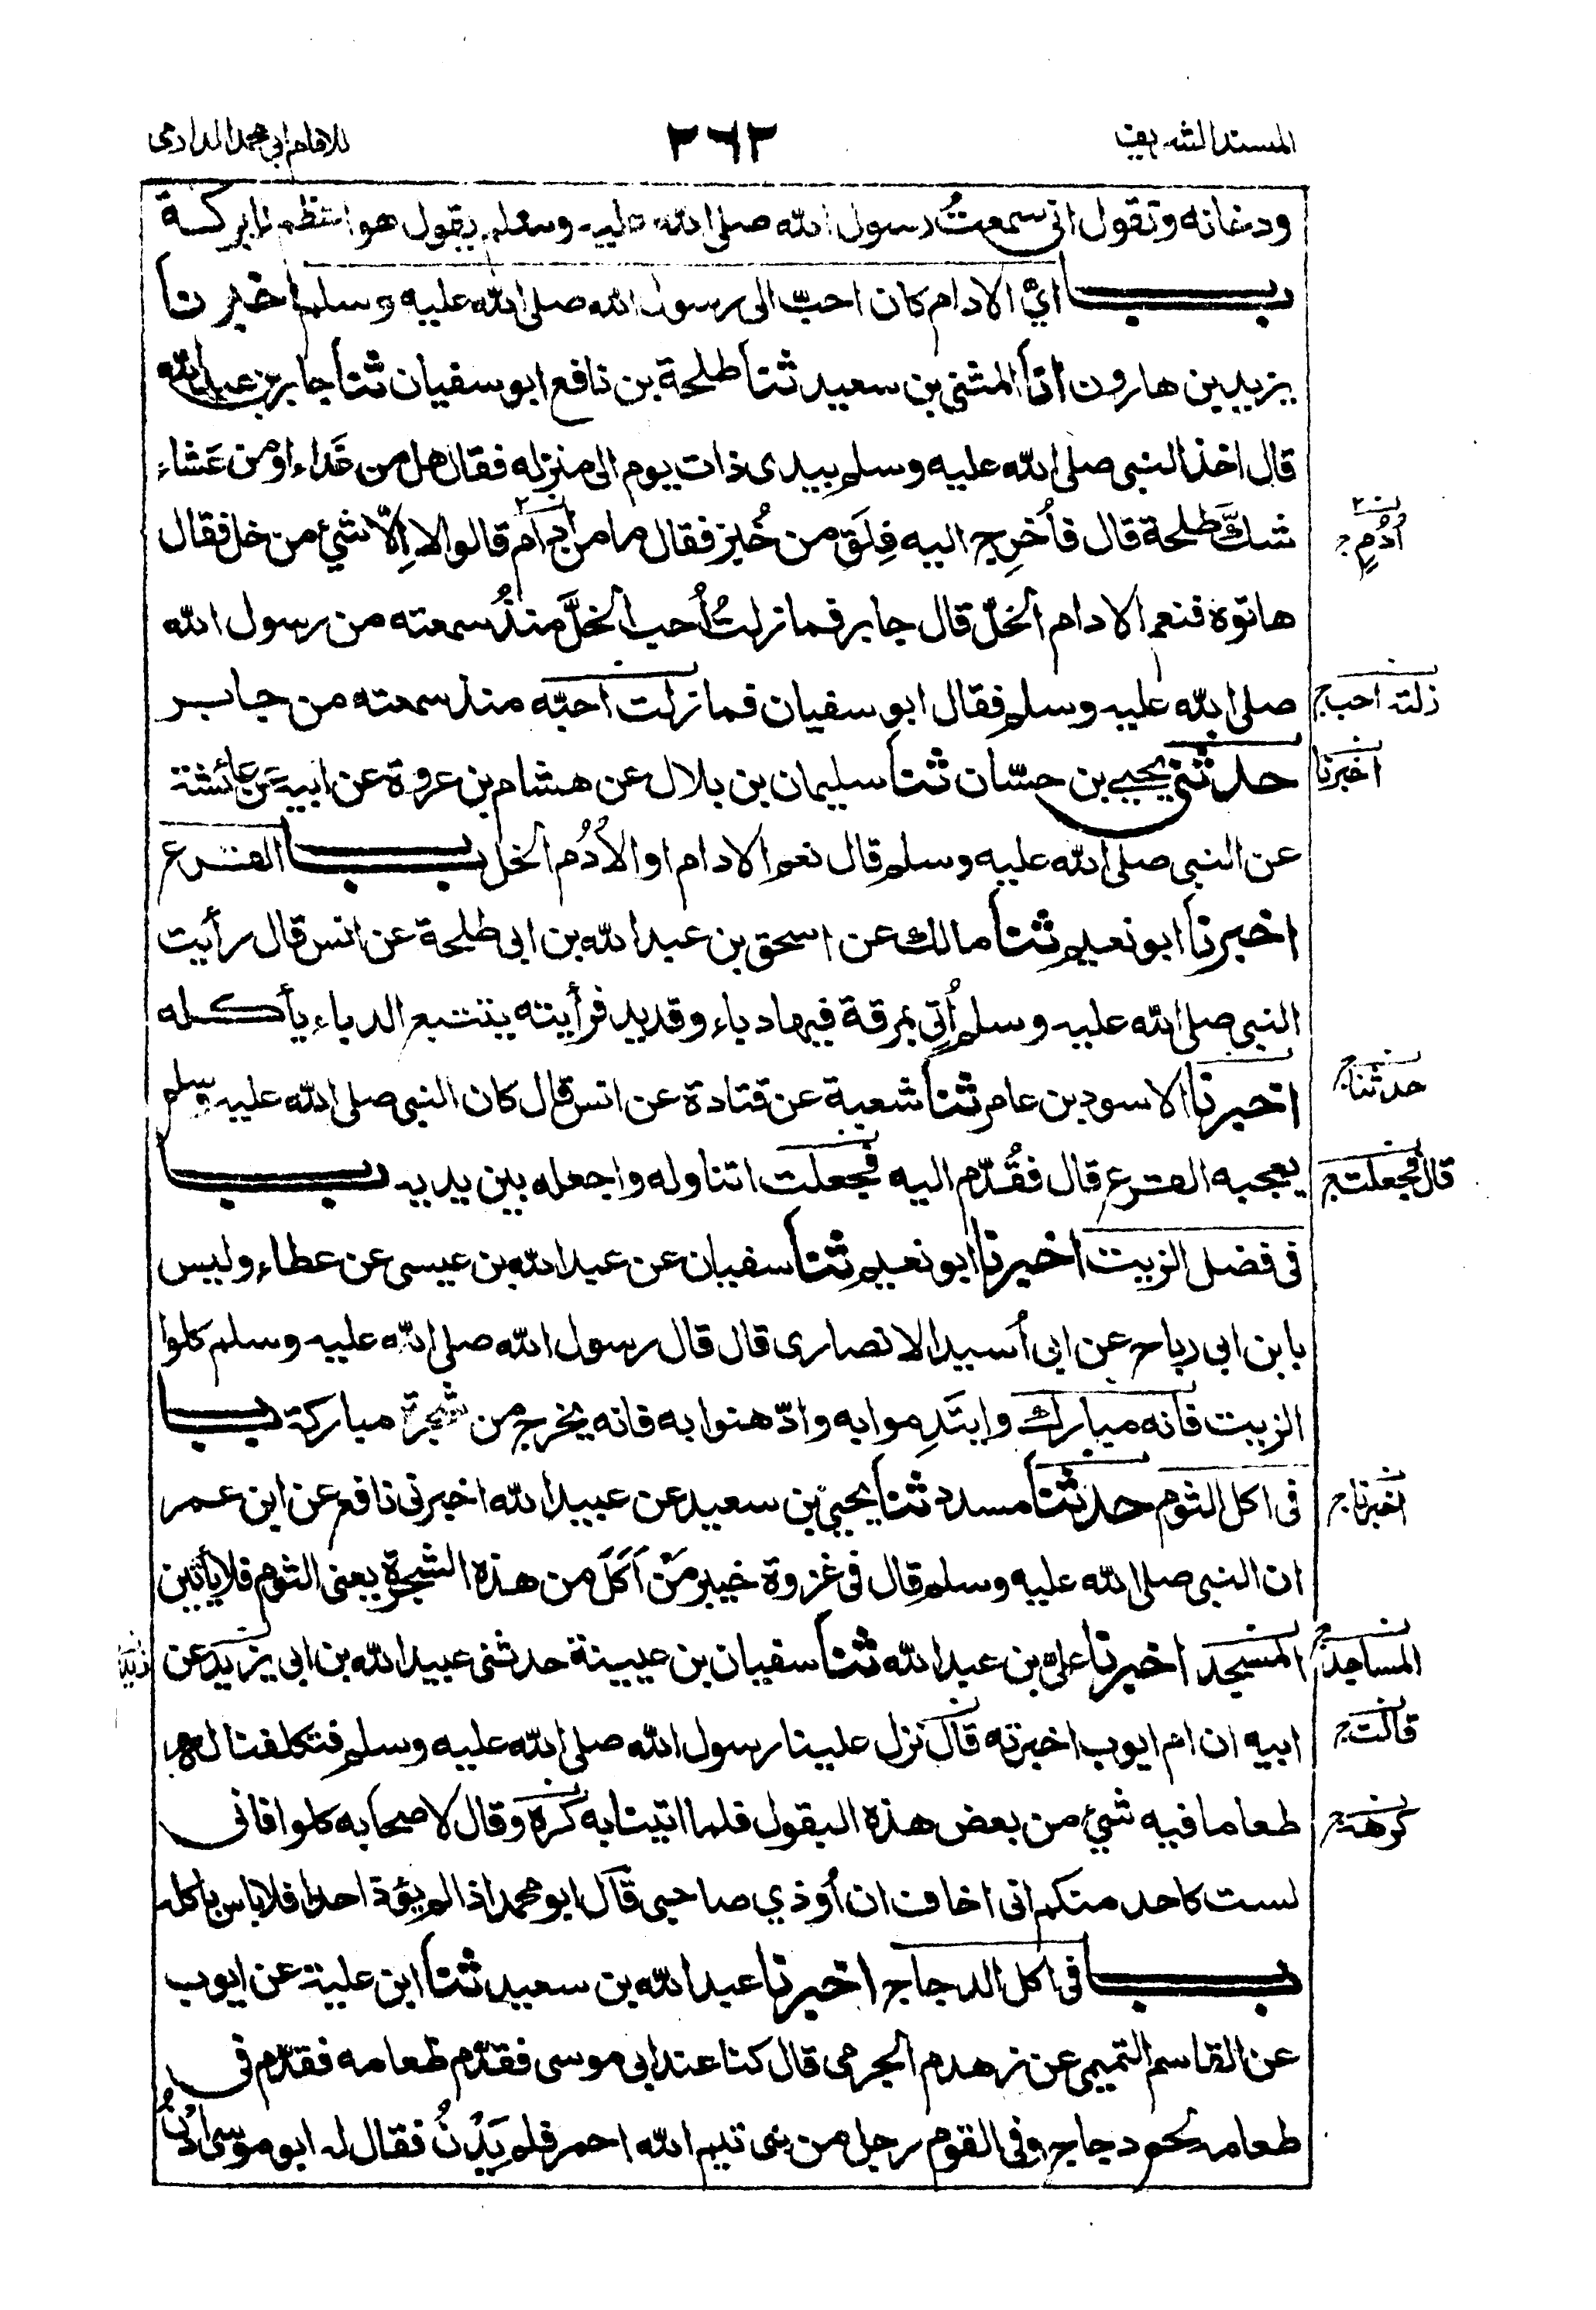 المسند الشريف ٢٦٢ للامام ابي محمد الدارمى
ودخانه وتقول انى سمعتُ رسول الله صلى الله عليه وسلم يقول هو اعظم للبركة
باب ايّ الادام كان احبّ الى رسول الله صلى الله عليه وسلم اخبرنا
يزيد بن هارون انا المثنى بن سعيد ثنا طلحة بن نافع ابو سفيان ثنا جابر بن عبد الله
قال اخذ النبى صلى الله عليه وسلم بيدى ذات يوم الى منزله فقال هل من غَداء او من عَشاء
شكّ طلحة قال فأُخرِج اليه فِلَق من خُبز فقال ما من ادام قالوا لا اِلّا شئ من خل فقال
أُدُمٍ
هاتوه فنعم الادام الخلّ قال جابر فما زلتُ أُحب الخلَّ منذُ سمعته من رسول الله
صلى الله عليه وسلم فقال ابو سفيان فما زلت احبّه منذ سمعته من جابر
زلته احب
حدثنى يحيى بن حسّان ثنا سليمان بن بلال عن هشام بن عروة عن ابيه عن عائشة
اخبرنا
عن النبى صلى الله عليه وسلم قال نعم الادام او الأُدُم الخل باب القرع
اخبرنا ابو نعيم ثنا مالك عن اسحق بن عبد الله بن ابى طلحة عن انس قال رأيت
النبى صلى الله عليه وسلم أُتِى بمرقة فيها دباء وقديد فرأيته يتتبع الدباء يأكله
اخبرنا الاسود بن عامر ثنا شعبة عن قتادة عن انس قال كان النبى صلى الله عليه وسلم
حدثنا
يعجبه القرع قال فقُدّم اليه فجعلت اتناوله واجعله بين يديه باب
قال فجعلت
فى فضل الزيت اخبرنا ابو نعيم ثنا سفيان عن عبد الله بن عيسى عن عطاء وليس
بابن ابى رباح عن ابى أسيد الانصارى قال قال رسول الله صلى الله عليه وسلم كلوا
الزيت فانه مبارك وايتَدِموا به وادّهنوا به فانه يخرج من شجرة مباركة باب
فى اكل الثوم حدثنا مسدد ثنا يحيى بن سعيد عن عبيد الله اخبرنى نافع عن ابن عمر
اخبرنا
ان النبى صلى الله عليه وسلم قال فى غزوة خيبر مَنْ اَكَلَ من هذه الشجرة يعنى الثوم فلا يأتين
المسجد اخبرنا علىّ بن عبد الله ثنا سفيان بن عيينة حدثنى عبيد الله بن ابى يزيد عن
المساجد
ابيه ان ام ايوب اخبرته قال نزل علينا رسول الله صلى الله عليه وسلم فتكلفنا له
قالت
طعاما فيه شئ من بعض هذه البقول فلما اتينا به كره وقال لاصحابه كلوا فانى
كرهه
لست كاحد منكم انى اخاف ان أوذي صاحبى قال ابو محمد اذا لم يؤذ احدا فلا باس باكله
باب فى اكل الدجاج اخبرنا عبد الله بن سعيد ثنا ابن علية عن ايوب
عن القاسم التميمى عن زهدم الجرمى قال كنا عند ابى موسى فقدّم طعامه فقدّم فى
طعامه لحم دجاج وفى القوم رجل من بنى تيم الله احمر فلم يَدْنُ فقال له ابو موسى ادْنُ